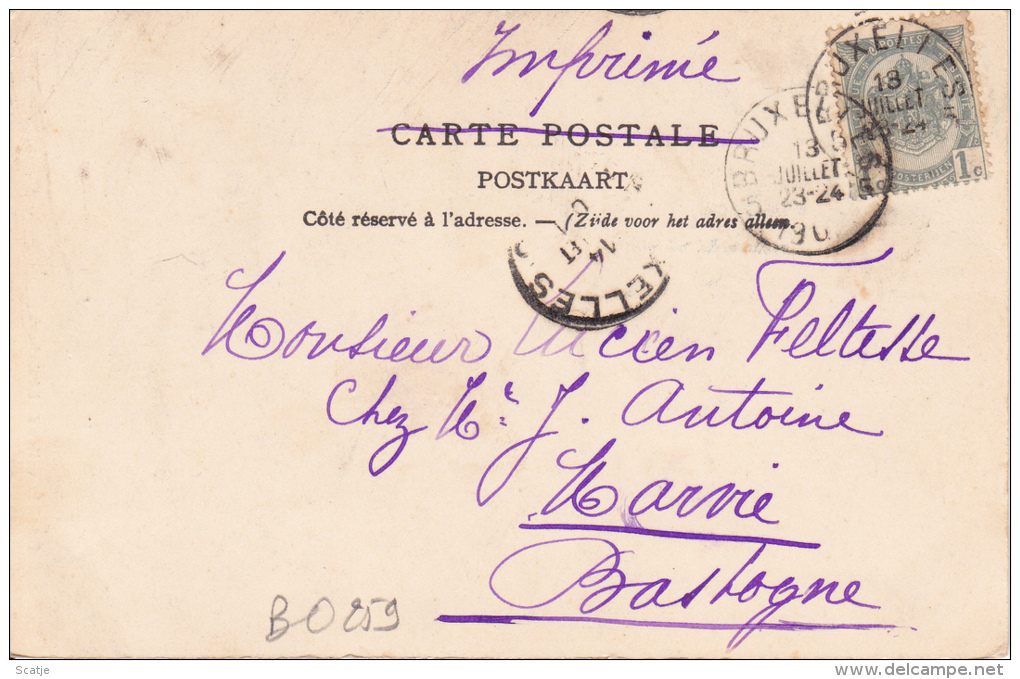 Imprimé
CARTE POSTALE
POSTKAART
Côté réservé à l'adresse. — (Zijde voor het adres alleen.
BRUXELLES
18
JUILLET
23-24
BRUXELLES 5
18
JUILLET
23-24
POSTES
POSTERIJEN
1c
14
XELLES
Monsieur Lucien Feltesse
Chez Mr. J. Antoine
Marvie
Bastogne
BO 259
Scatje
www.delcampe.net